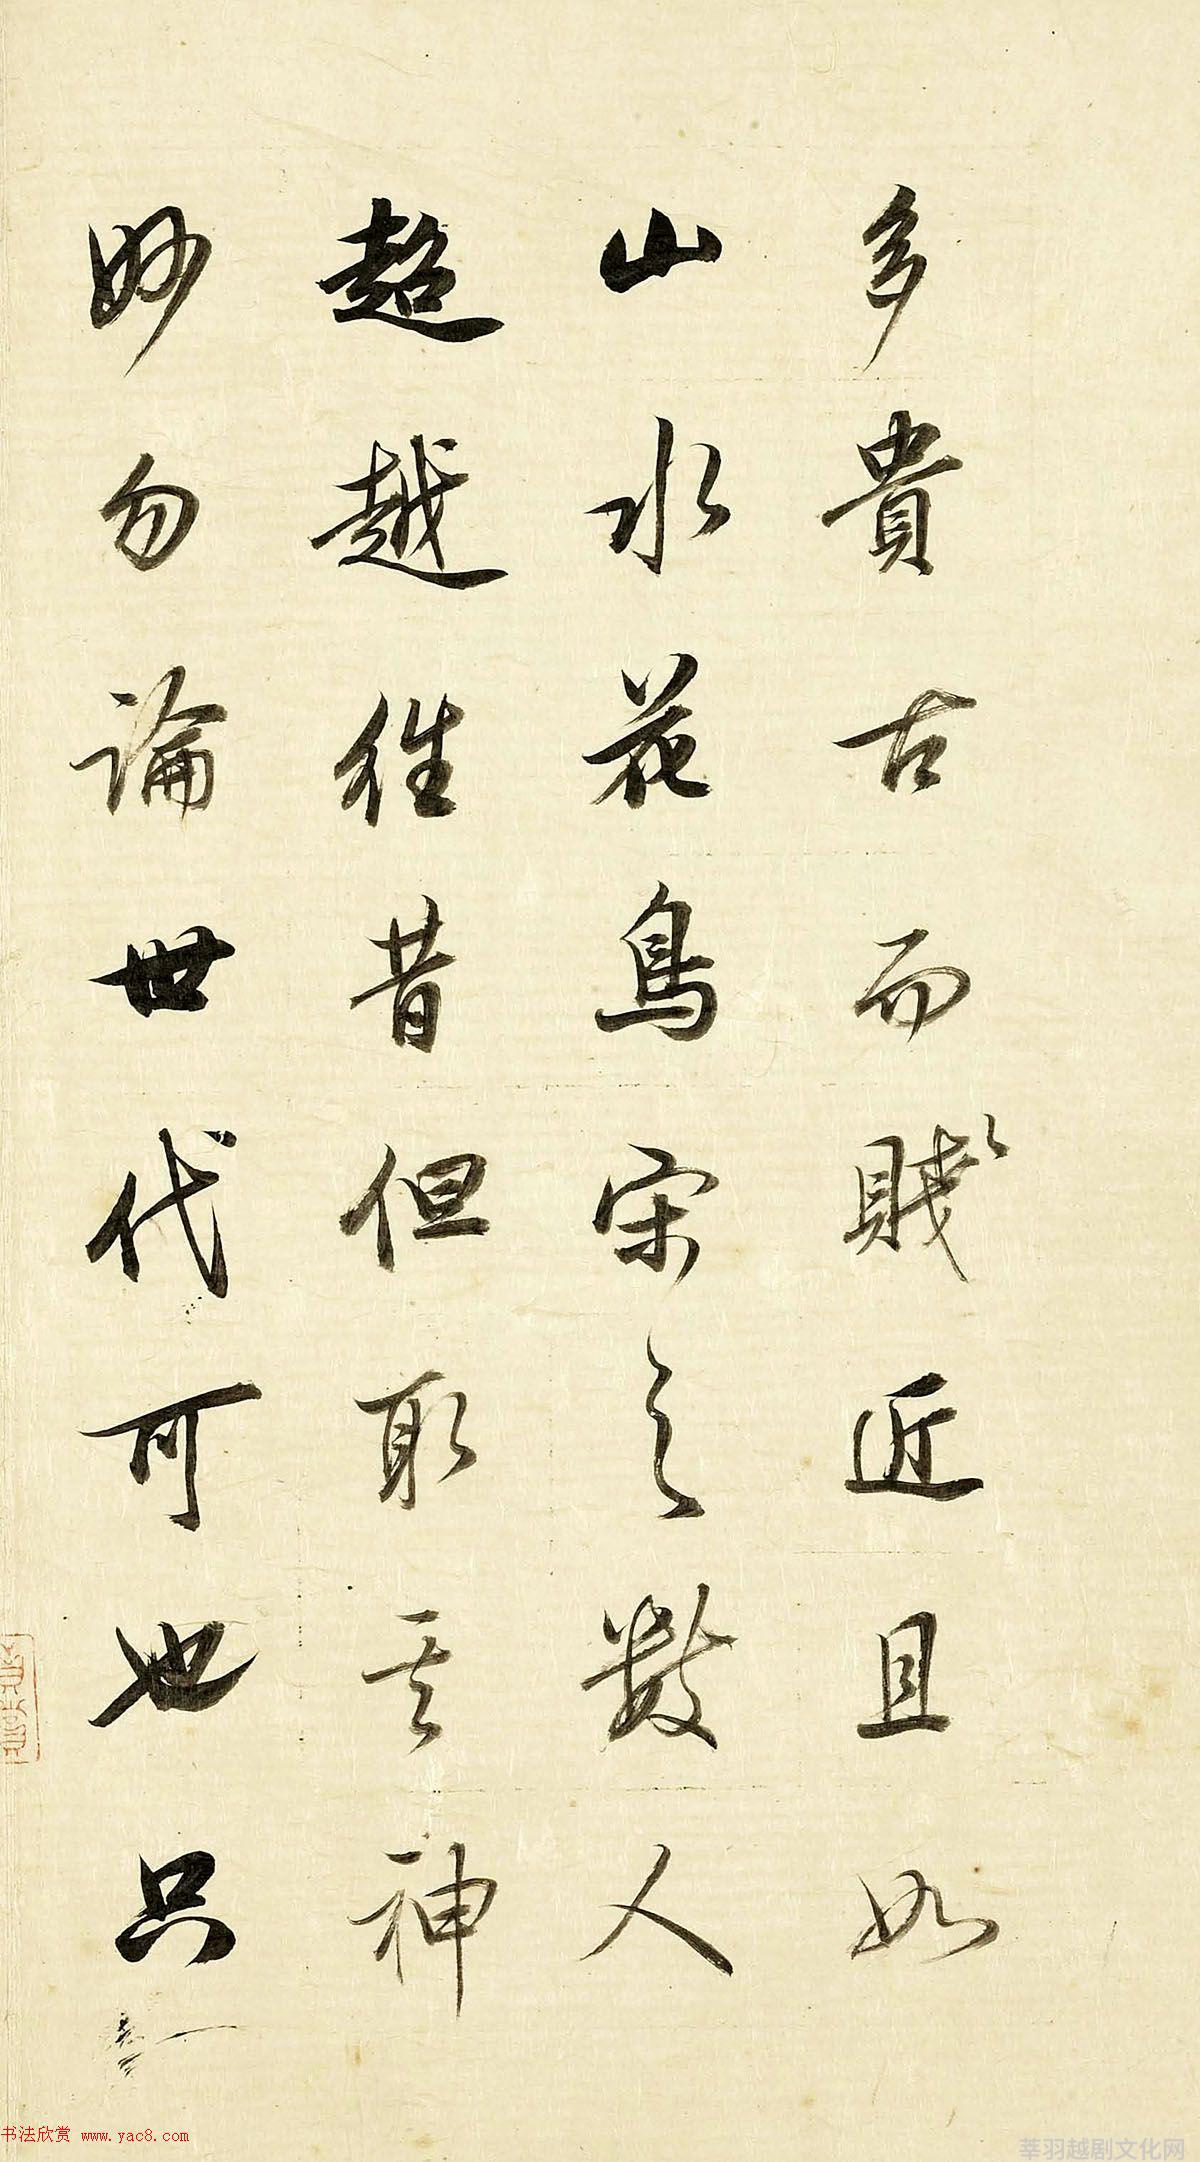 多貴古而賤近且如
山水花鳥宋之數人
超越往昔但取其神
妙勿論世代可也只
书法欣赏 www.yac8.com
莘羽越剧文化网